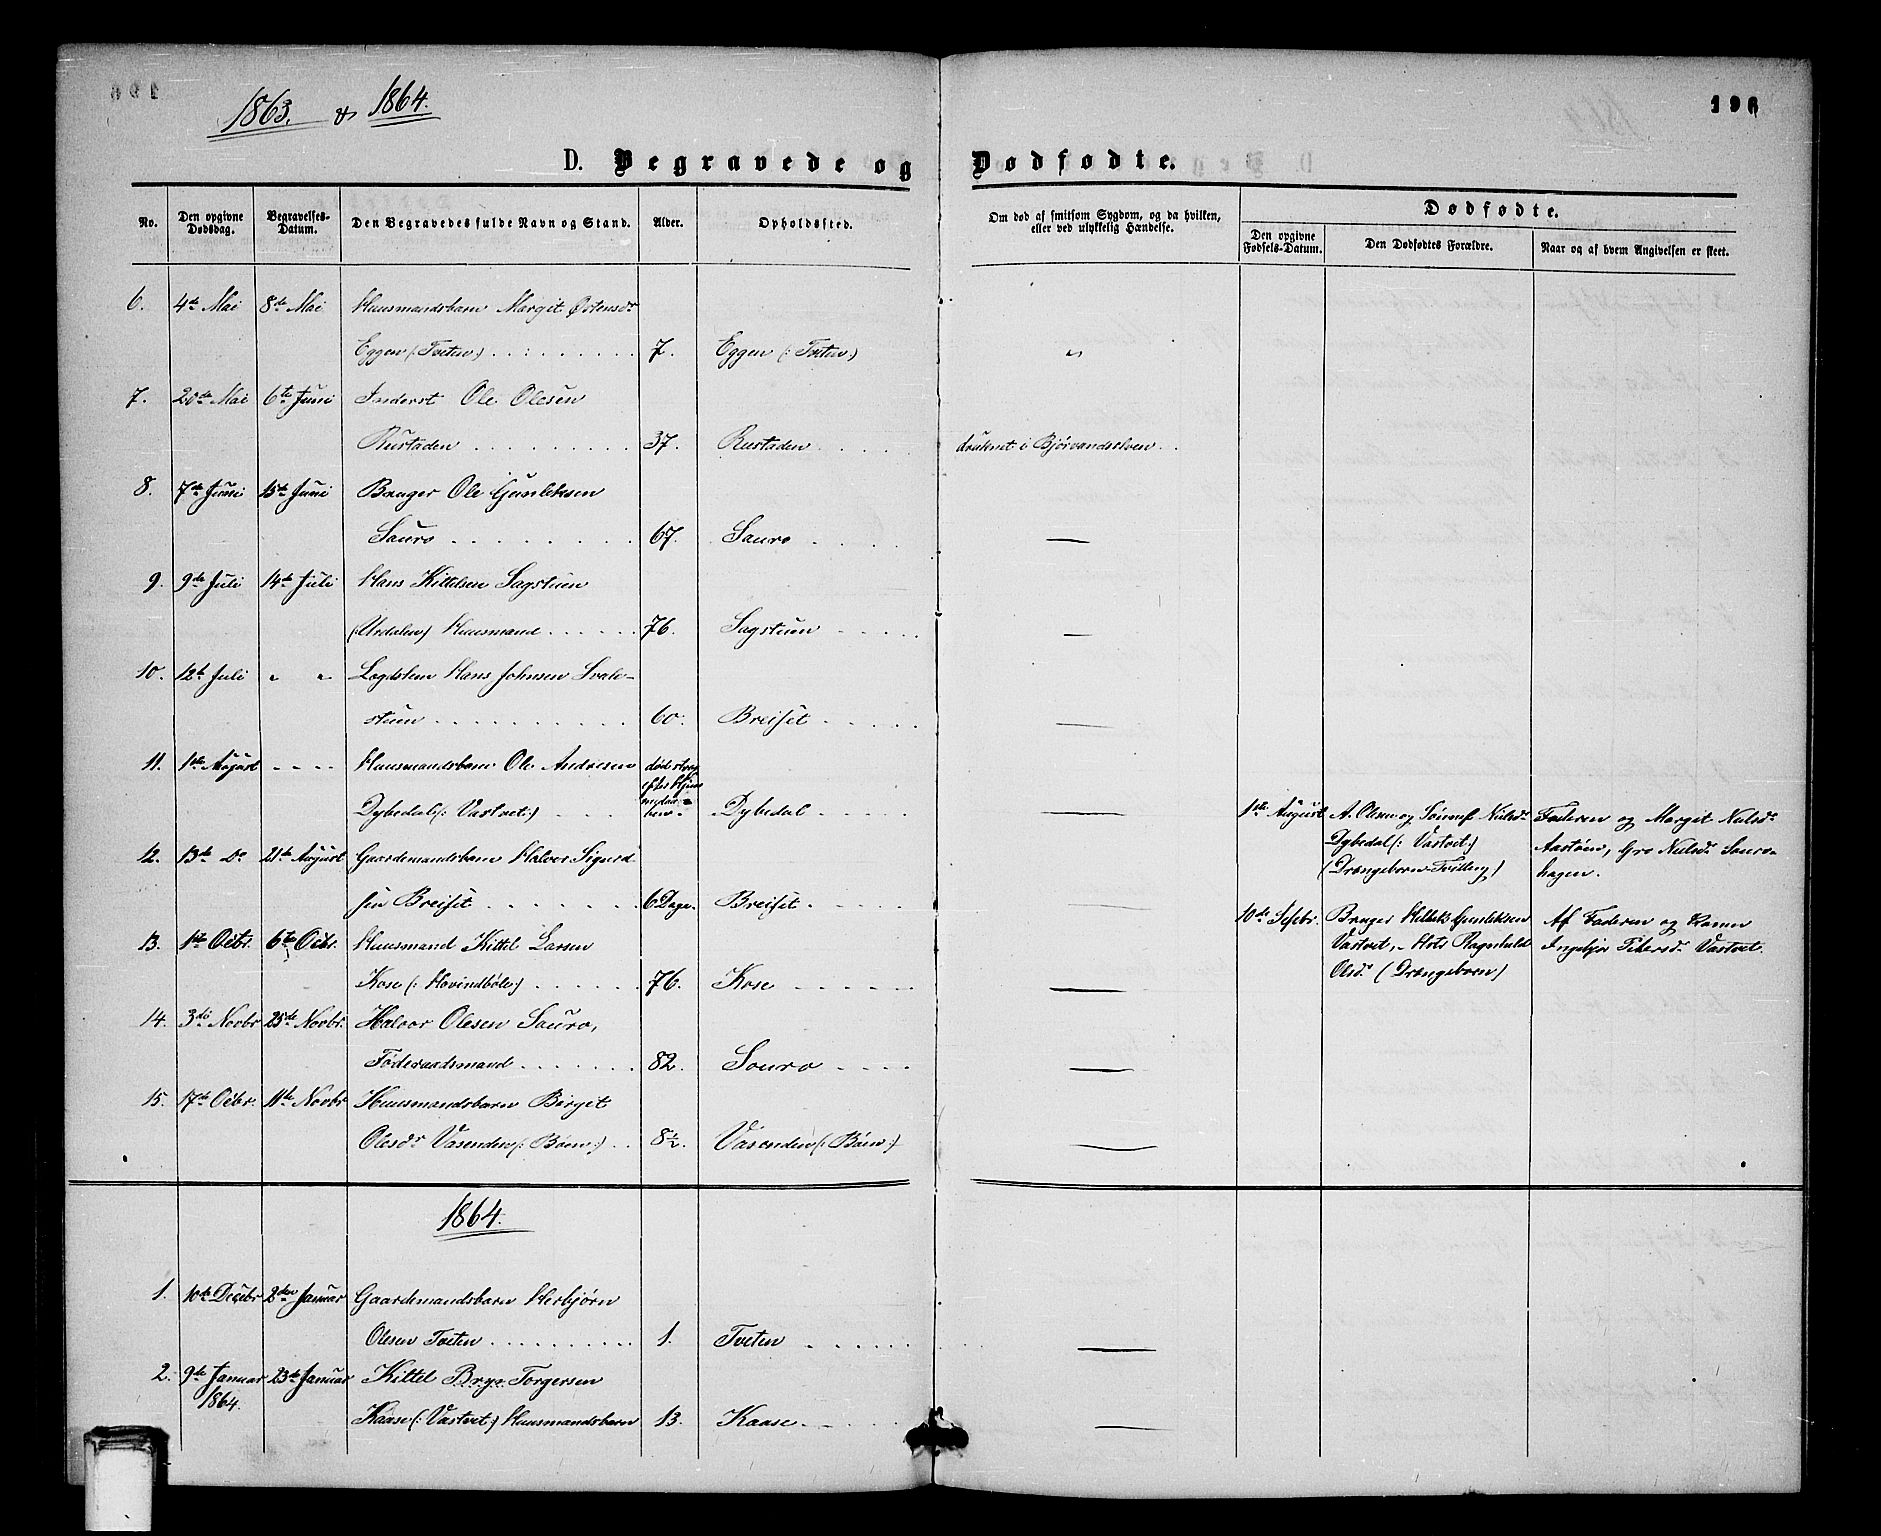 1863. & 1864.
196
D. Begravede og Dødfødte.
No.
Den opgivne Dødsdag.
Begravelses-Datum.
Den Begravedes fulde Navn og Stand.
Alder.
Opholdssted.
Om død af smitsom Sygdom, og da hvilken,
eller ved ulykkelig Hændelse.
Dødfødte.
Den opgivne Fødsels-Datum.
Den Dødfødtes Forældre.
Naar og af hvem Angivelsen er skeet.
6. 4de Mai 8de Mai Huusmandsbarn Margit Østensdr
Eggen (: Tveten:) 7. Eggen (: Tveten:) "
7. 20de Mai 6te Juni Inderst Ole Olesen
Rustaden 37. Rustaden druknet i Bjørvandselven
8. 7de Juni 15de Juni Bruger Ole Gunleksen
Sauro 67. Sauro —
9. 9de Juli 14de Juli Hans Kittelsen Sagstuen
(Urdalen) Huusmand 76. Sagstuen —
10. 12te Juli " " Logdslem Hans Johnsen Svale-
stuen 60. Breiset —
11. 1ste August - - - - Huusmandsbarn Ole Andresen død strax
efter Hjem
Dybedal (: Vastvet:) Dybedal
1ste August A. Olsen og Sønnef Nielsdr
Dybedal (: Vastvet:)
(Drængebarn Tvilling)
Faderen og Margit Nielsdr
Aastøen, Gro Nielsdr Sauro-
hagen.
12. 13de Do 21de August Gaardemandsbarn Halvor Sigurd
sen Breiset 6 Dage. Breiset —
10de Septbr. Bruger Gunleksen
Vastvet, Ragnhild
Olsdr (Drængebarn)
Af Faderen og Konen
Ingebjør Vastvet.
13. 1ste Octbr. 6te Octbr. Huusmand Kittel Larsen
Kose (: Hovindbøle:) 76. Kose —
14. 3die Novbr 25de Novbr. Halvor Olesen Sauro,
Føderaadsmand 82. Souro —
15. 17de Octbr. 11te Novbr Huusmandsbarn Birgit
Olesdr Vasenden (: Bøen:) 8½. Vasenden (: Bøen:) —
1864.
1. 10de Decebr 2den Januar Gaardemandsbarn Herbjørn
Olesen Tveten 1. Tveten —
2. 9de Januar 23de Januar Kittel Brye Torgersen
1864.
Kaase (: Vastvet:) Huusmandsbarn 13. Kaase —